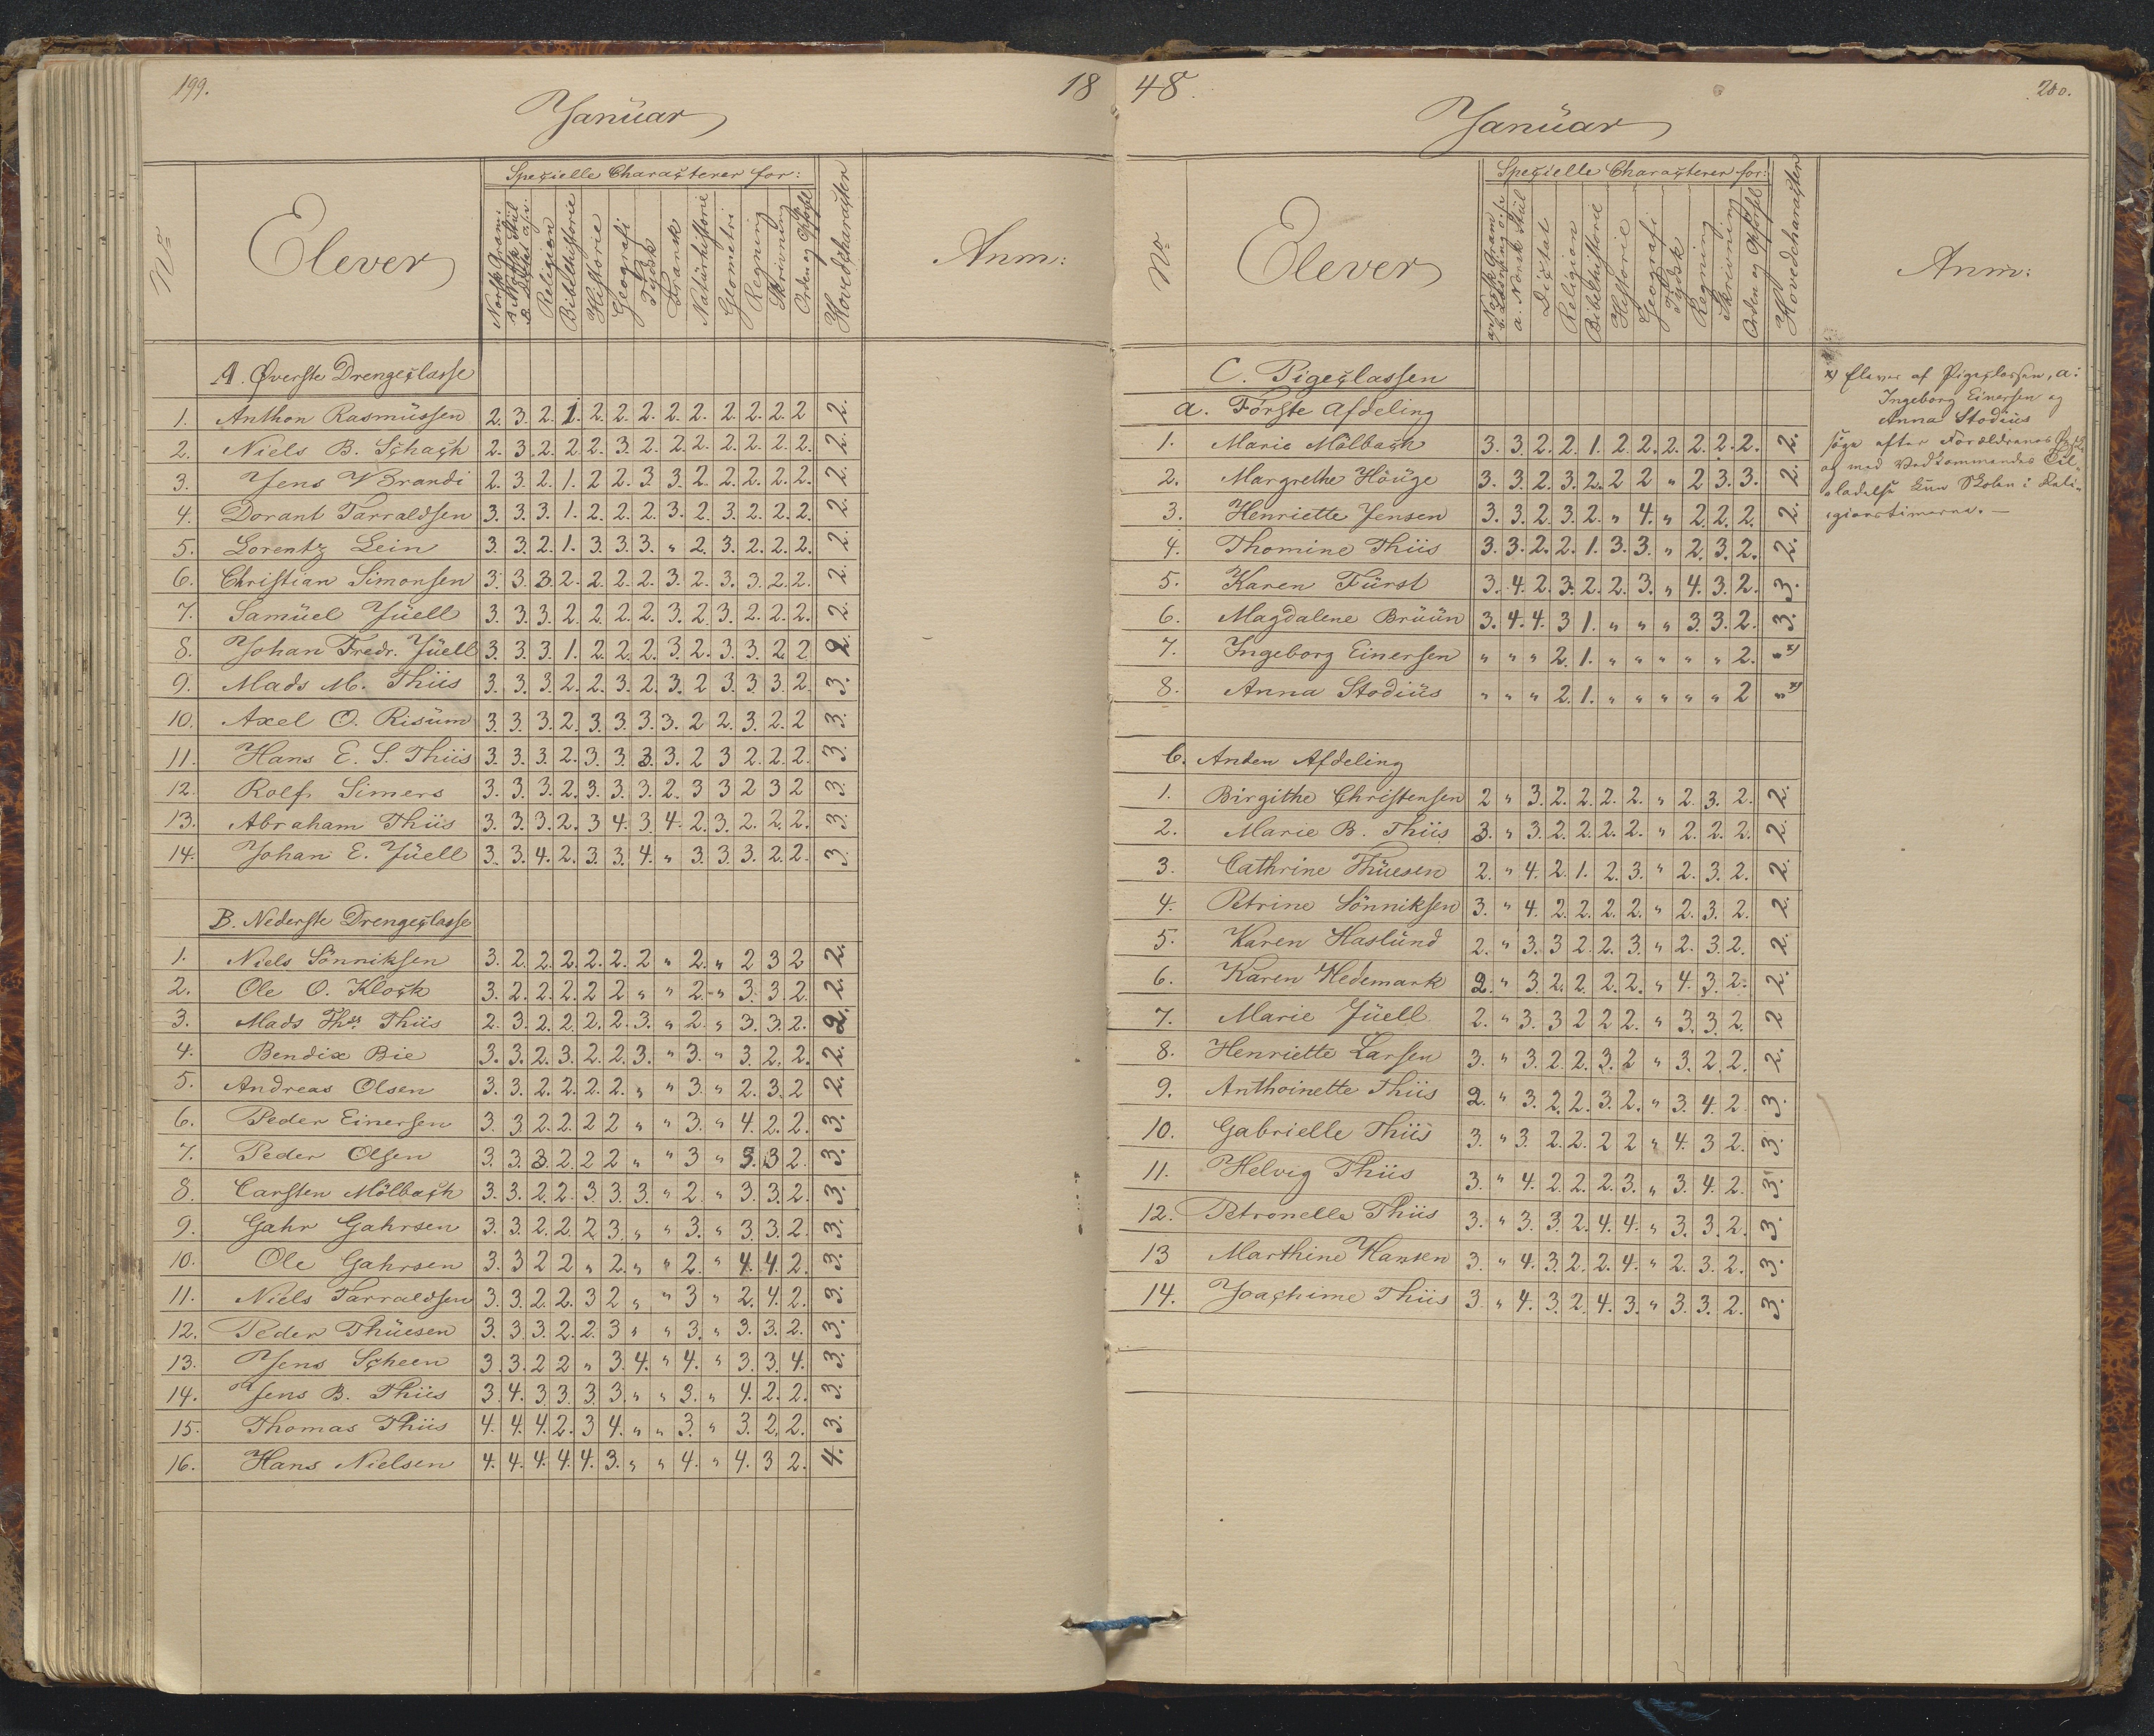 199.
18
Januar
No
Elever
Specielle Characterer for:
Norsk Gram:
A Norsk Stiil
B. Dictat o.s.v.
Religion
Bibelhistorie
Historie
Geografi
Tydsk
Fransk
Naturhistorie
Geometri
Regning
Skrivning
Orden og Opførsel
Hovedcharacteer
Anm:
A. Øverste Drengeclasse
1. Anthon Rasmussen 2. 3. 2. 1. 2. 2. 2. 2. 2. 2. 2. 2. 2 2.
2. Niels B. Schack 2. 3. 2. 2. 2. 3. 2. 2. 2. 2. 2. 2. 2. 2.
3. Jens W Brandi 2. 3. 2. 1. 2 2. 3 3. 2. 2. 2. 2. 2. 2.
4. Dorant Tarraldsen 3. 3. 3. 1. 2. 2. 2. 3. 2. 3. 2. 2. 2. 2.
5. Lorentz Lein 3. 3. 2. 1. 3. 3. 3. " 2. 3. 2. 2. 2. 2.
6. Christian Simonsen 3. 3. 3. 2. 2. 2. 2. 3. 2. 3. 3. 2. 2. 2.
7. Samüel Jüell 3. 3. 3. 2. 2. 2. 2. 3. 2. 3. 2. 2. 2. 2.
8. Johan Fredr. Jüell 3. 3. 3. 1. 2. 2. 2. 3. 2. 3. 3. 2. 2 2.
9. Mads M. Thiis 3. 3. 3. 2. 2. 3. 2. 3. 2 3. 3. 3. 2. 3.
10. Axel O. Risüm 3 3. 3. 2. 3. 3. 3. 3. 2 2. 3. 2. 2 3.
11. Hans E. S. Thiis 3. 3. 3. 2. 3. 3. 3. 3. 2 3 2. 2. 2. 3.
12. Rolf Simers 3. 3. 3. 2. 3. 3. 3. 2. 3 3 2 3 2 3.
13. Abraham Thiis 3. 3. 3. 2. 3 4. 3. 4. 2. 3. 2. 2. 2. 3.
14. Johan E. Jüell 3. 3. 4. 2. 3. 3. 4. " 3. 3. 3. 2. 2. 3.
B. Nederste Drengeclasse
1. Niels Sönniksen 3. 2. 2. 2. 2. 2. 2 " 2. " 2 3 2 2.
2. Ole O. Klock 3. 2. 2. 2. 2 2 " " 2. " 3. 3. 2. 2.
3. Mads Ths. Thiis 2. 3. 2. 2. 2. 2. 3. " 2. " 3. 3. 2. 2.
4. Bendix Bie 3. 3. 2. 3. 2. 2. 3. " 3. " 3. 2. 2. 2.
5. Andreas Olsen 3. 3. 2. 2. 2. 2. " " 3. " 2. 3. 2 2.
6. Peder Einersen 3. 3. 2. 2. 2 2 " " 3. " 4. 2. 2. 3.
7. Peder Olsen 3. 3. 3. 2. 2 2 " " 3 " 3. 3 2. 3.
8. Carsten Mölback 3. 3. 2. 2. 3. 3. 3. " 2. " 3. 3. 2. 3.
9. Gahr Gahrsen 3. 3. 2. 2. 2 3. " " 3. " 3. 3. 2. 3.
10. Ole Gahrsen 3. 3 2 2 " 2. " " 2. " 4. 4. 2. 3.
11. Niels Tarraldsen 3. 3. 2. 2. 3 2 " " 3 " 2. 4. 2. 3.
12. Peder Thüesen 3. 3. 3. 2. 2. 3 " " 3. " 3. 3. 2. 3.
13. Jens Scheen 3. 3. 2 2 " 3. 4. " 4. " 3. 3. 4. 3.
14. Jens B. Thiis 3. 4. 3. 3. 3. 3. " " 3. " 4. 2. 2. 3.
15. Thomas Thiis 4. 4. 4. 2. 3 4. " " 3. " 3. 2. 2. 3.
16. Hans Nielsen 4. 4. 4. 4. 4. 3. " " 4. " 4. 3 2. 4.
48.
200.
Januar
No
Elever
Specielle Characterer for:
Norsk Gram
a. Norsk Stiil
Dictat
Religion
Bibelhistorie
Historie
Geografi
Tydsk
Regning
Skrivning
Orden og Opførsel
Hovedcharacteer
Anm:
C. Pigeclassen
a. Förste Afdeling
1. Marie Mölbach 3. 3. 2. 2. 1. 2. 2. 2. 2. 2. 2. 2.
2. Margrethe Höüge 3. 3. 2. 3. 2. 2 2 " 2 3. 3. 2.
3. Henriette Jensen 3. 3. 2. 3. 2. " 4. " 2. 2. 2. 2.
4. Thomine Thiis 3. 3. 2. 2. 1. 3. 3. " 2. 3. 2. 2.
5. Karen Fürst 3. 4. 2. 3. 2. 2. 3. " 4. 3. 2. 3.
6. Magdalene Brüün 3. 4. 4. 3 1. " " " 3. 3. 2. 3.
7. Ingeborg Einersen " " " 2. 1. " " " " " 2. " x)
8. Anna Stodiüs " " " 2. 1. " " " " " 2 " x)
b. Anden Afdeling
1. Birgithe Christensen 2 " 3. 2. 2. 2. 2. " 2. 3. 2. 2.
2. Marie B. Thiis 3. " 3. 2. 2. 2. 2. " 2. 2. 2. 2.
3. Cathrine Thüesen 2. " 4. 2. 1. 2. 3. " 2. 3. 2. 2.
4. Petrine Sönniksen 3. " 4. 2. 2. 2. 2. " 2. 3. 2. 2.
5. Karen Haslünd 2. " 3. 3 2. 2. 3. " 2. 3. 2. 2.
6. Karen Hedemark 2. " 3. 2. 2. 2. 2. " 4. 3. 2. 2.
7. Marie Jüell 2. " 3. 3 2 2 2. " 3. 3. 2. 2
8. Henriette Larsen 3. " 3. 2. 2. 3. 2 " 3. 2. 2. 2.
9. Anthoinette Thiis 2. " 3. 2. 2. 3. 2. " 3. 4. 2 3.
10. Gabrielle Thiis 3. " 3. 2. 2. 2 2 " 4. 3 2. 3.
11. Helvig Thiis 3. " 4. 2. 2. 2. 3. " 3. 4. 2. 3.
12. Petronelle Thiis 3. " 3. 3. 2. 4. 4. " 3. 3. 2. 3.
13 Marthine Hansen 3. " 4. 3. 2. 2. 4. " 2. 3. 2. 3.
14. Joachime Thiis 3. " 4. 3. 2. 4. 3. " 3. 3. 2. 3.
x) Elever af Pigeclassen, a:
Ingeborg Einersen og
Anna Stodius
søge efter Forældrenes Ønske
og med Vedkommendes Til-
ladelse kun Skolen i Reli-
gionstimerne. —